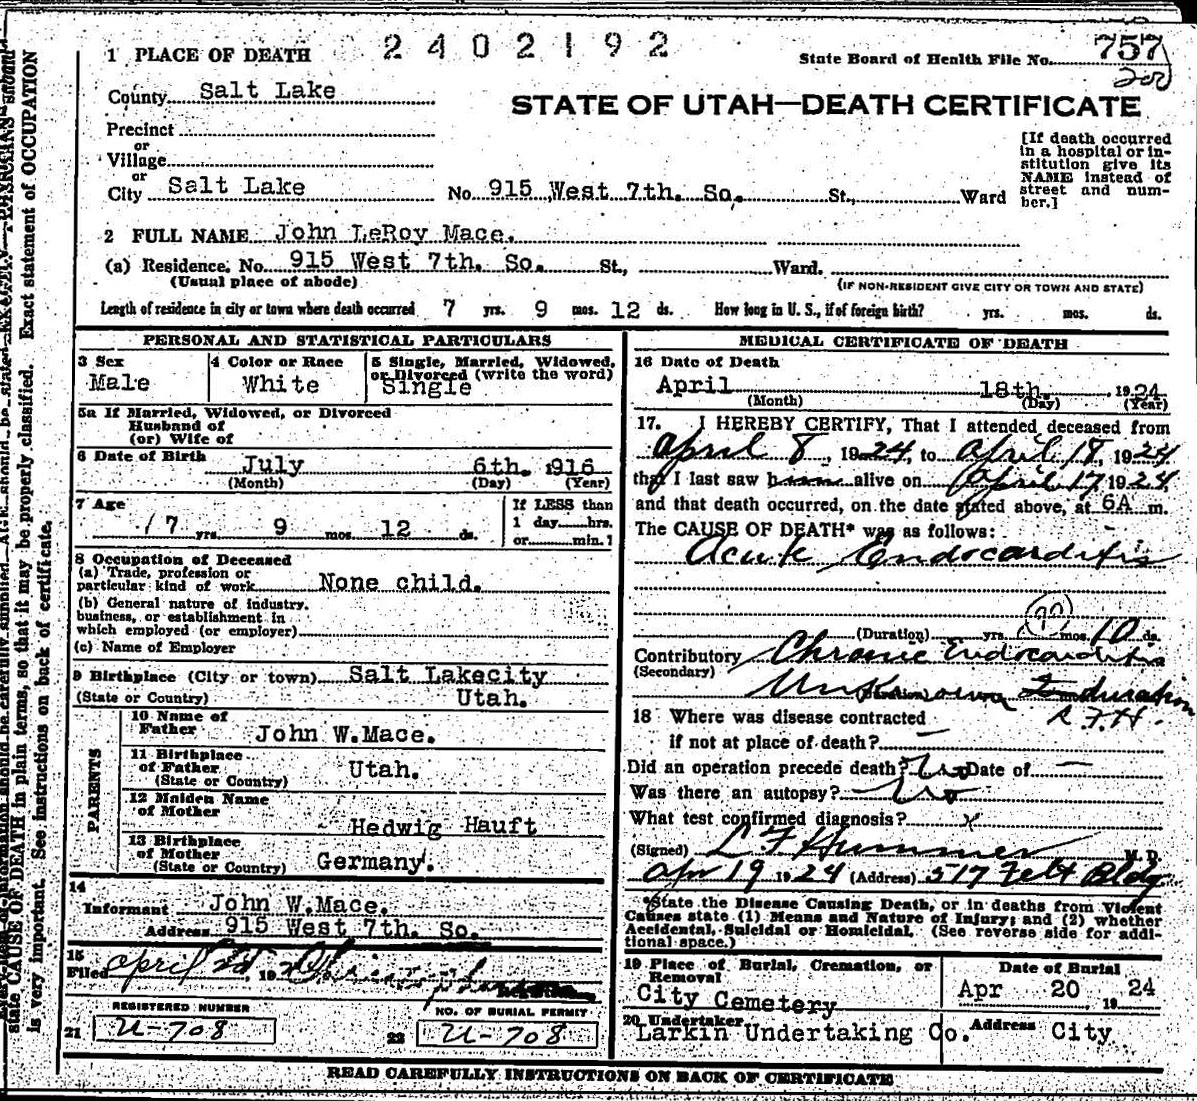 2402192
1 PLACE OF DEATH
State Board of Health File No. 757
200
County Salt Lake
STATE OF UTAH—DEATH CERTIFICATE
Precinct
or
Village
or
City Salt Lake No. 915 West 7th. So. St., Ward
[If death occurred
in a hospital or in-
stitution give its
NAME instead of
street and num-
ber.]
2 FULL NAME John LeRoy Mace.
(a) Residence. No. 915 West 7th. So. St., Ward.
(Usual place of abode)
(IF NON-RESIDENT GIVE CITY OR TOWN AND STATE)
Length of residence in city or town where death occurred 7 yrs. 9 mos. 12 ds. How long in U. S., if of foreign birth? yrs. mos. ds.
PERSONAL AND STATISTICAL PARTICULARS
3 Sex
Male
4 Color or Race
White
5 Single, Married, Widowed,
or Divorced (write the word)
Single
5a If Married, Widowed, or Divorced
Husband of
(or) Wife of
6 Date of Birth
July 6th. 1916
(Month) (Day) (Year)
7 Age
7 yrs. 9 mos. 12 ds.
If LESS than
1 day hrs.
or min.1
8 Occupation of Deceased
(a) Trade, profession or
particular kind of work None child.
(b) General nature of industry.
business, or establishment in
which employed (or employer)
(c) Name of Employer
9 Birthplace (City or town) Salt Lakecity
(State or Country) Utah.
PARENTS
10 Name of
Father John W.Mace.
11 Birthplace
of Father Utah.
(State or Country)
12 Maiden Name
of Mother
Hedwig Hauft
13 Birthplace
of Mother
(State or Country) Germany.
14
Informant John W.Mace.
Address 915 West 7th. So.
15
Filed april 22d 192
Registrar
REGISTERED NUMBER
21 U-708
NO. OF BURIAL PERMIT
22 U-708
MEDICAL CERTIFICATE OF DEATH
16 Date of Death
April 18th. 1924
(Month) (Day) (Year)
17. I HEREBY CERTIFY, That I attended deceased from
april 8, 1924, to april 18, 1924
that I last saw him alive on april 17 1924,
and that death occurred, on the date stated above, at 6A m.
The CAUSE OF DEATH* was as follows:
Acute Endocarditis
(Duration) yrs. mos. 10 ds.
Contributory Chronic Endocarditis
(Secondary)
Unknown duration
L.F.H.
18 Where was disease contracted
if not at place of death? —
Did an operation precede death? No Date of —
Was there an autopsy? No
What test confirmed diagnosis? x
(Signed) L F Hummer M. D.
Apr 19 1924 (Address) 317 Felt Bldg
*State the Disease Causing Death, or in deaths from Violent
Causes state (1) Means and Nature of Injury; and (2) whether
Accidental, Suicidal or Homicidal. (See reverse side for addi-
tional space.)
19 Place of Burial, Cremation, or
Removal
City Cemetery
Date of Burial
Apr 20 1924
20 Undertaker
Larkin Undertaking Co. Address City
READ CAREFULLY INSTRUCTIONS ON BACK OF CERTIFICATE
state CAUSE OF DEATH in plain terms, so that it may be properly classified. Exact statement of OCCUPATION
is very important. See instructions on back of certificate.